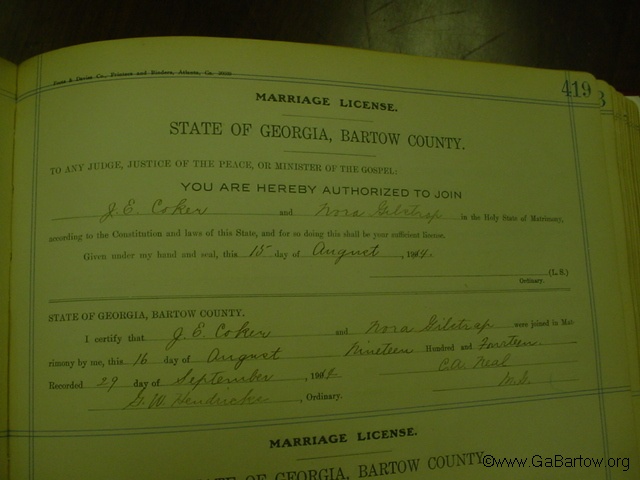 419
MARRIAGE LICENSE.
STATE OF GEORGIA, BARTOW COUNTY.
TO ANY JUDGE, JUSTICE OF THE PEACE, OR MINISTER OF THE GOSPEL:
YOU ARE HEREBY AUTHORIZED TO JOIN
J. E. Coker and Nora Gilstrap in the Holy State of Matrimony,
according to the Constitution and laws of this State, and for so doing this shall be your sufficient license.
Given under my hand and seal, this 15 day of August, 1914.
(L. S.)
Ordinary.
STATE OF GEORGIA, BARTOW COUNTY.
I certify that J. E. Coker and Nora Gilstrap were joined in Mat-
rimony by me, this 16 day of August Nineteen Hundred and Fourteen
Recorded 29 day of September, 1914 C.A. Neal
G. W. Hendricks, Ordinary. M.G.
MARRIAGE LICENSE.
STATE OF GEORGIA, BARTOW COUNTY
©www.GaBartow.org